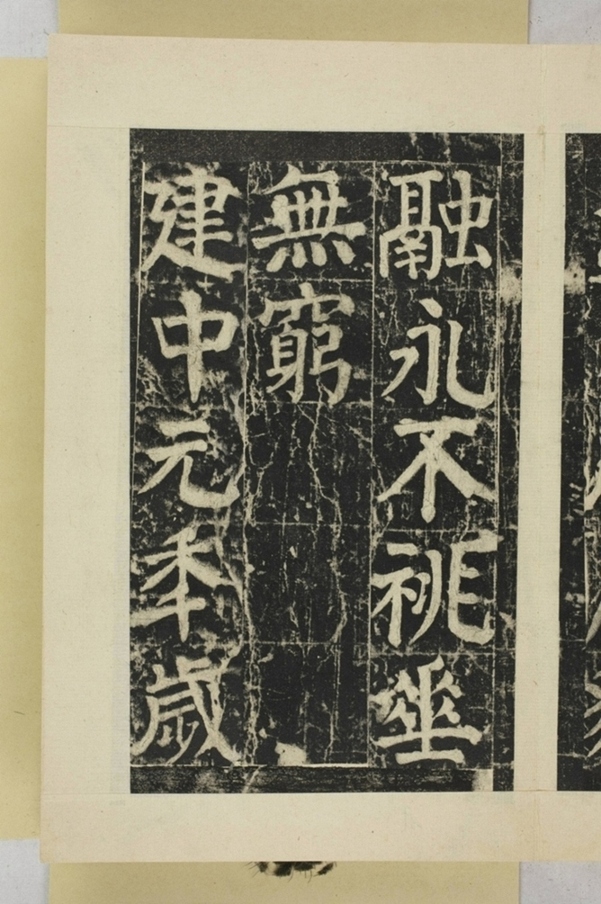 融永不祧垂
無窮
建中元秊歲